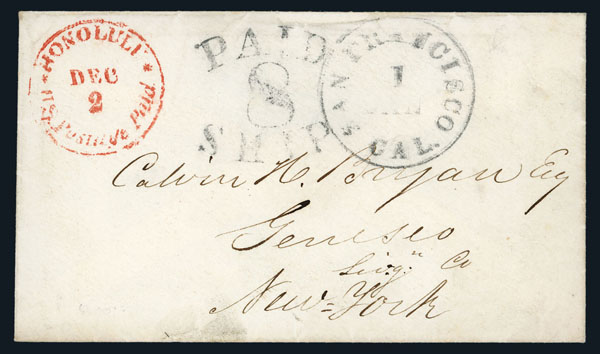 HONOLULU
DEC
2
U.S. Postage Paid
PAID
8
SHIP
SAN FRANCISCO
1
JAN
CAL.
Calvin H. Bryan Esq
Geneseo
Livgn Co
New-York